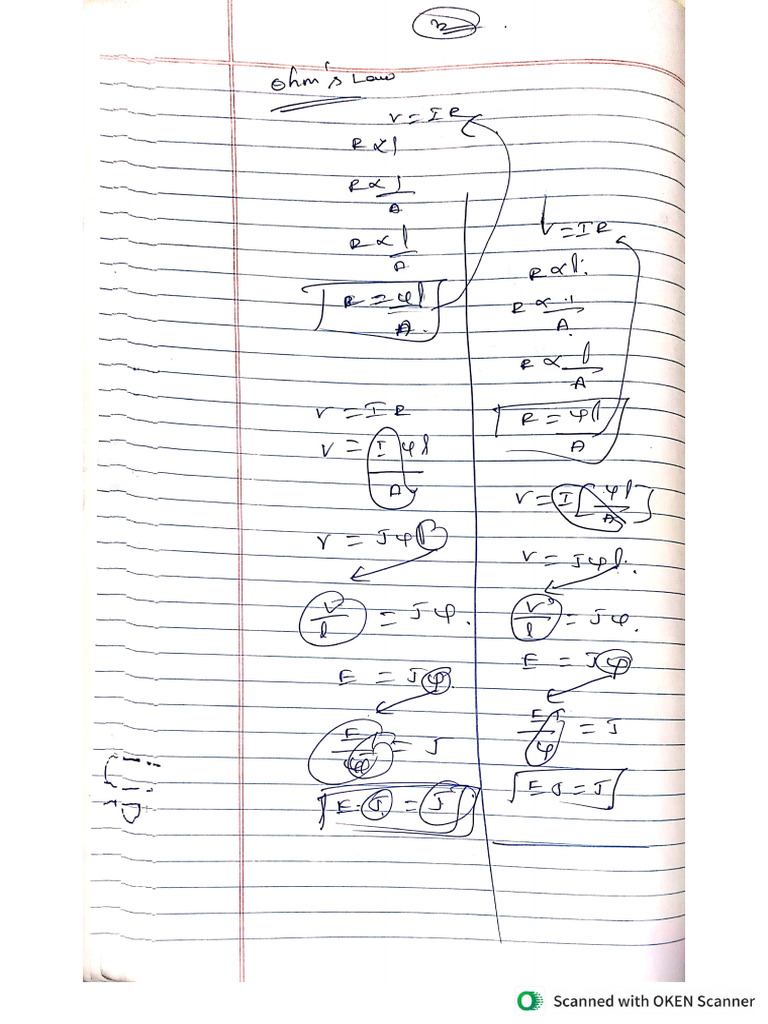 Ohm's Law
V = IR
R ∝ l
R ∝ 1/A
R ∝ l/A
R = φl/A
V = IR
V = Iφl/A
V = Jφl
V/l = Jφ.
E = Jφ.
E/φ = J
E σ = J
V = IR
R ∝ l
R ∝ 1/A
R ∝ l/A
R = φl/A
V = I[φl/A]
V = Jφl.
V/l = Jφ.
E = Jφ
E/φ = J
E σ = J
Scanned with OKEN Scanner